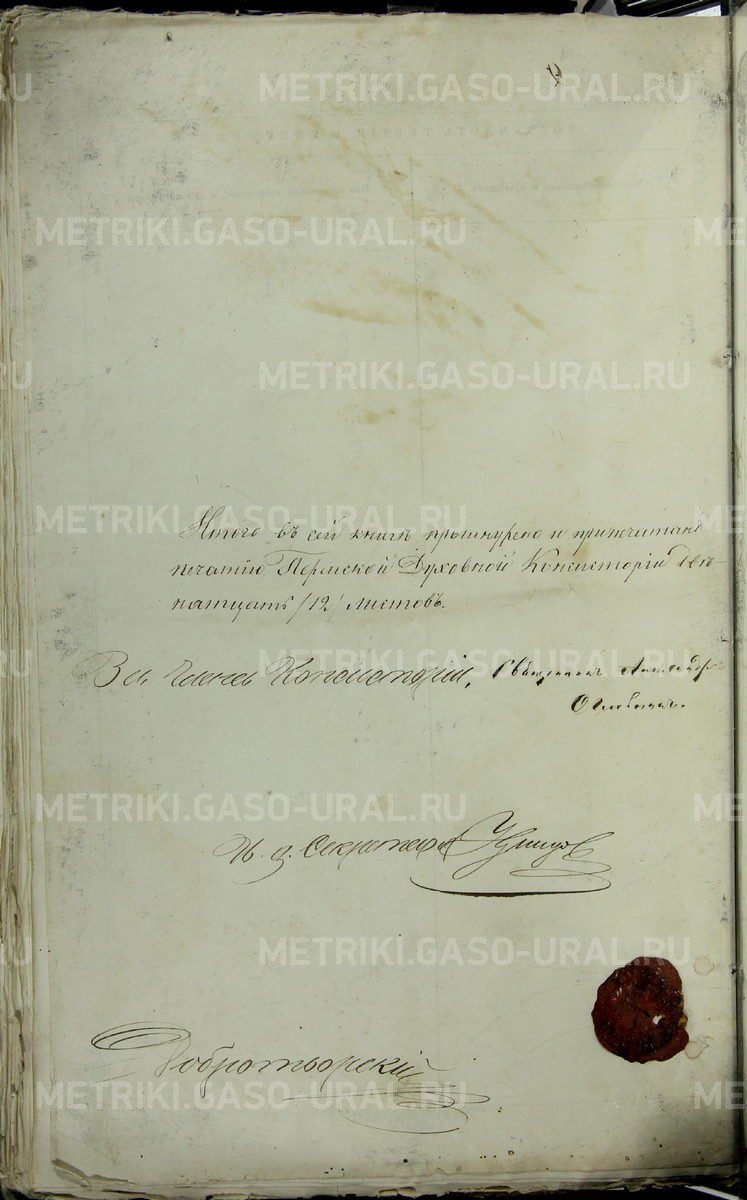 METRIKI.GASO-URAL.RU
METRIKI.GASO-URAL.RU
METRIKI.GASO-URAL.RU
METRIKI.GASO-URAL.RU
Итого въ сей книгѣ прошнурено и припечатано
печатію Пермской Духовной Консисторіи двѣ-
натцать /12/ листовъ.
За Члена Консисторіи, Священникъ
METRIKI.GASO-URAL.RU
METRIKI.GASO-URAL.RU
И. д. Секретаря
METRIKI.GASO-URAL.RU
Добротворскій
METRIKI.GASO-URAL.RU